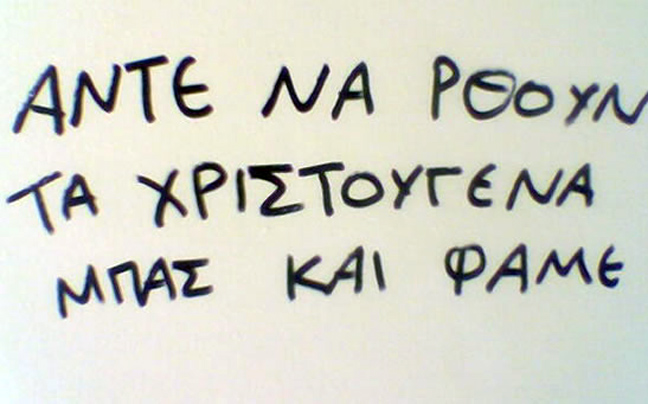 ΑΝΤΕ ΝΑ ΡΘΟΥΝ
ΤΑ ΧΡΙΣΤΟΥΓΕΝΑ
ΜΠΑΣ ΚΑΙ ΦΑΜΕ